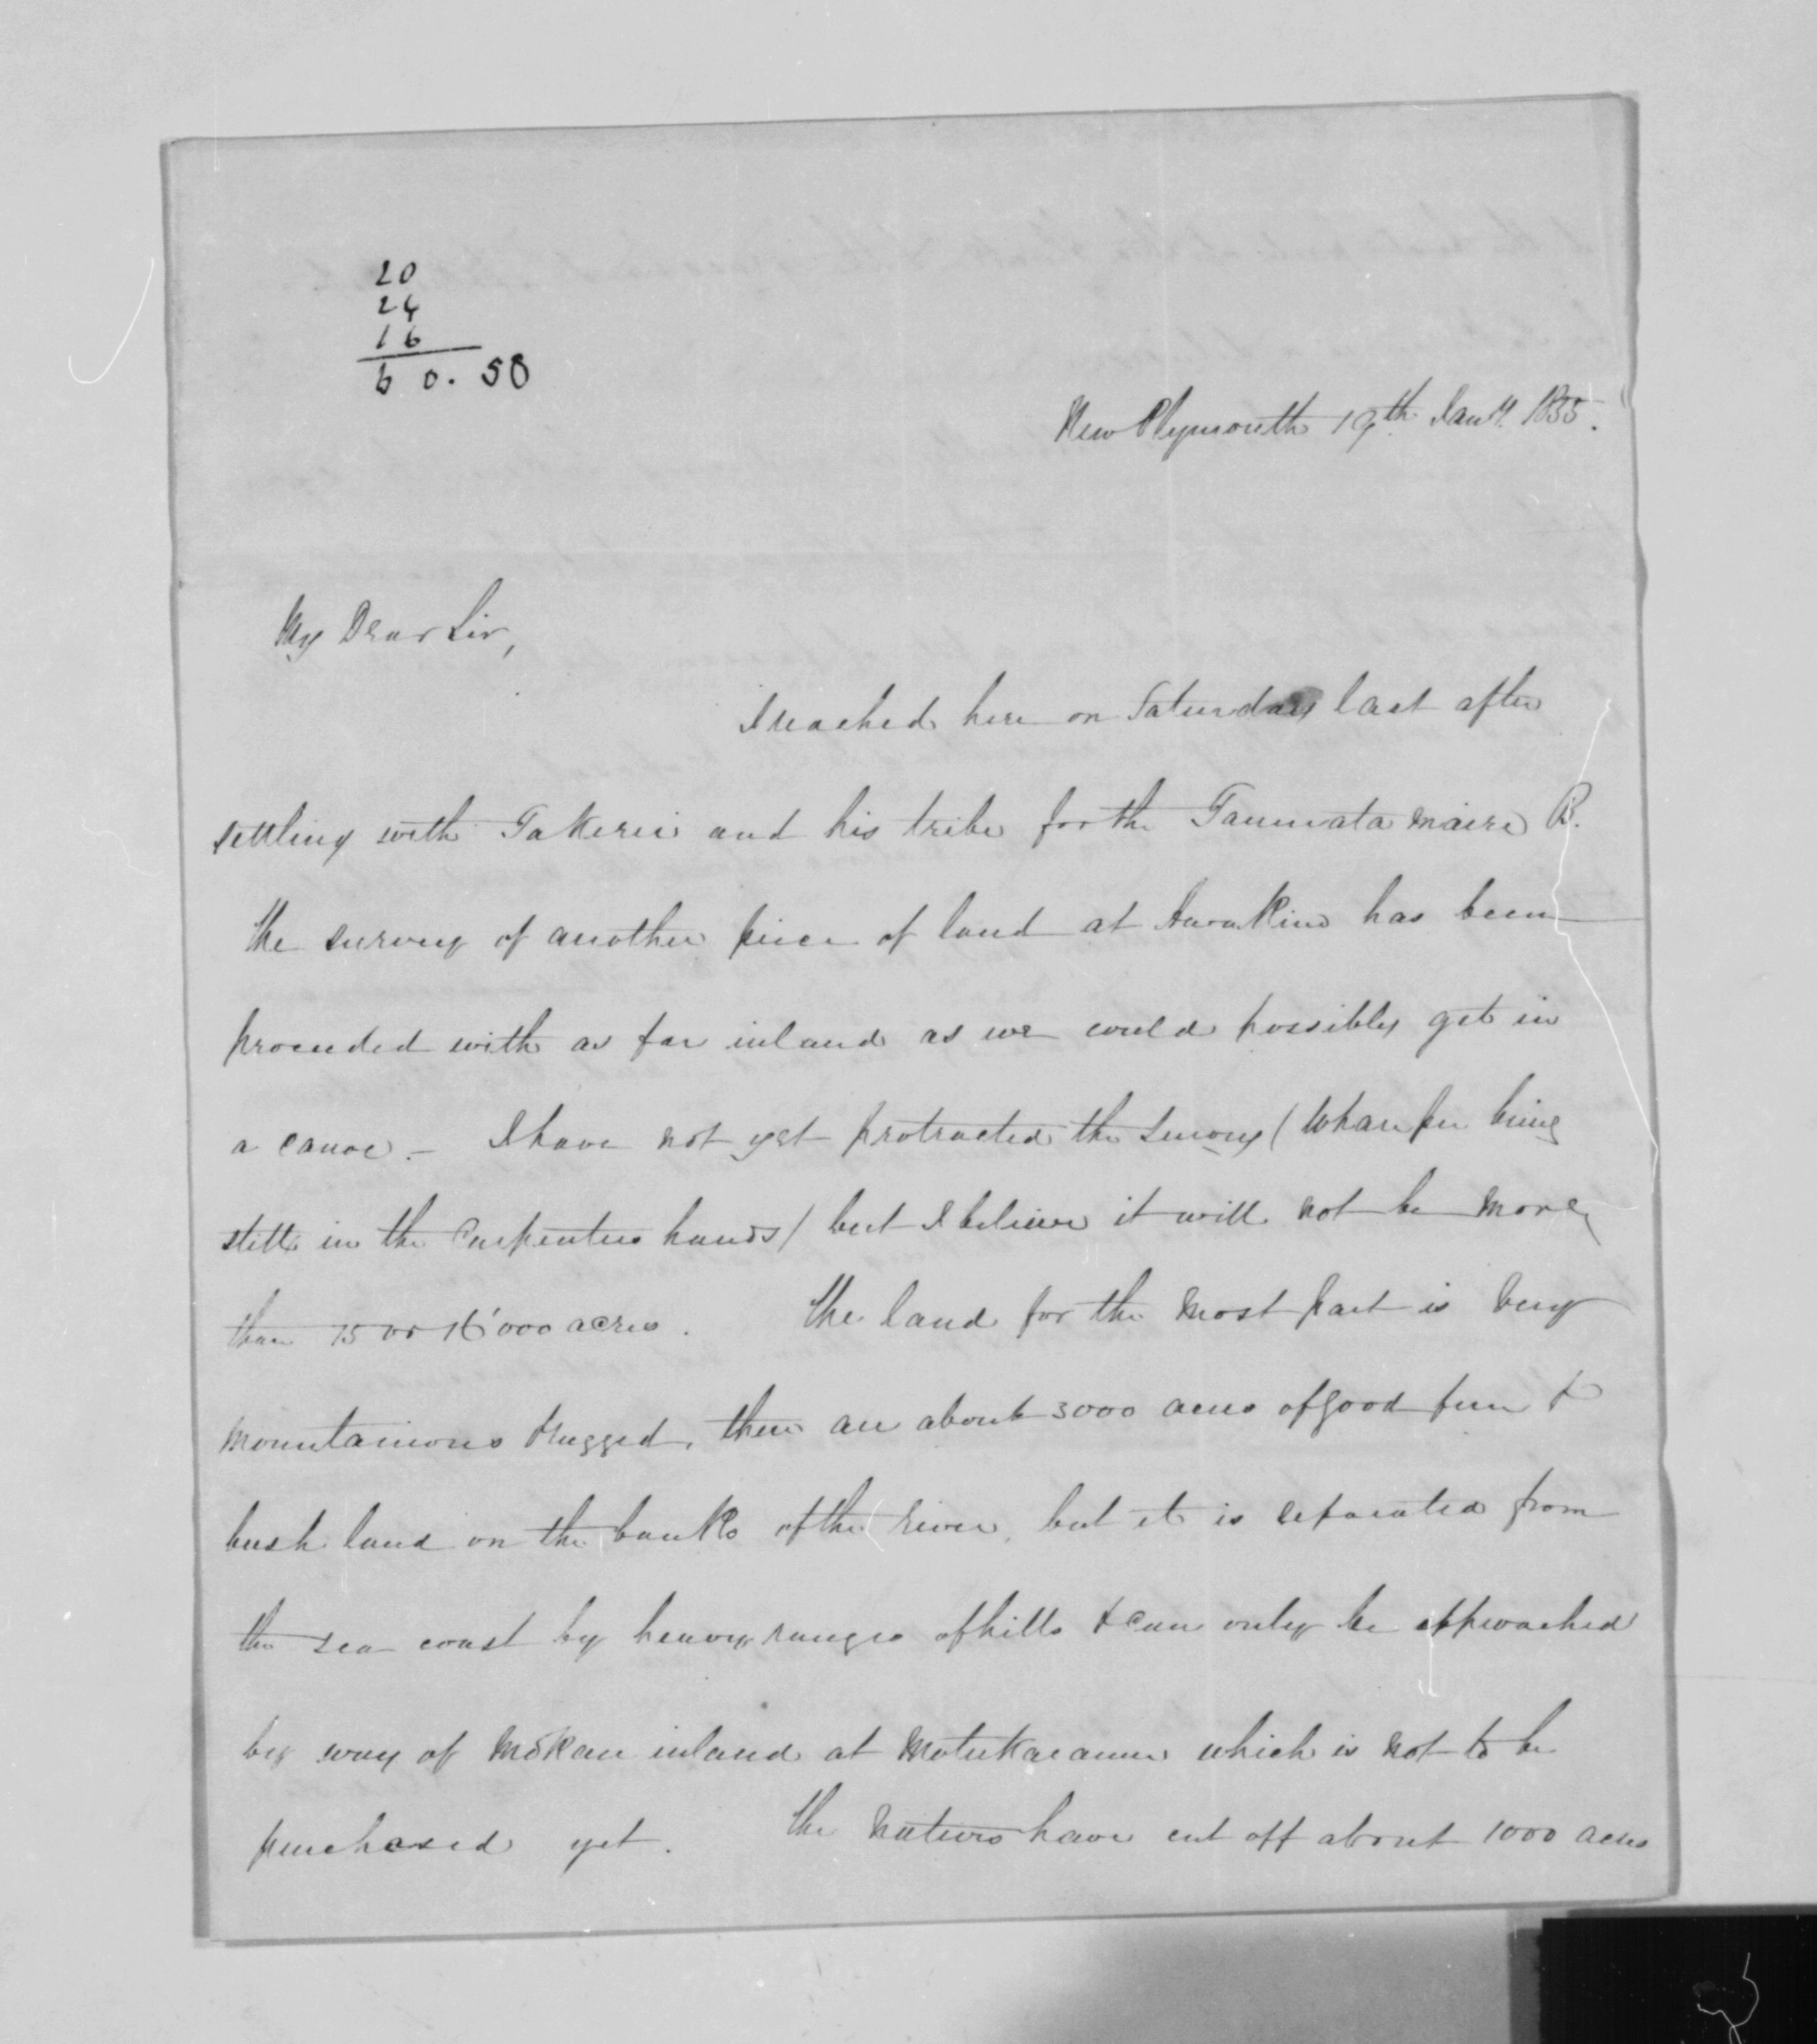 20
24
16
60. 58
New Plymouth 19th Jany. 1855.
My Dear Sir,
I reached here on Saturday last after
settling with Takerei and his tribe for the Taumata maire B.
the survey of another piece of land at Awakino has been
proceeded with as far inland as we could possibly get in
a canoe. – I have not yet protracted the Survey ( being
still in the Carpenters hands) but I believe it will not be more
than 15 or 16'000 acres. The land for the most part is very
mountainous & rugged, there are about 3000 acres of good fern &
bush land on the banks of the river, but it is separated from
the sea coast by heavy ranges of hills & can only be approached
by way of Mokau inland at Motukaramu which is not to be
purchased yet. The Natives have cut off about 1000 acres